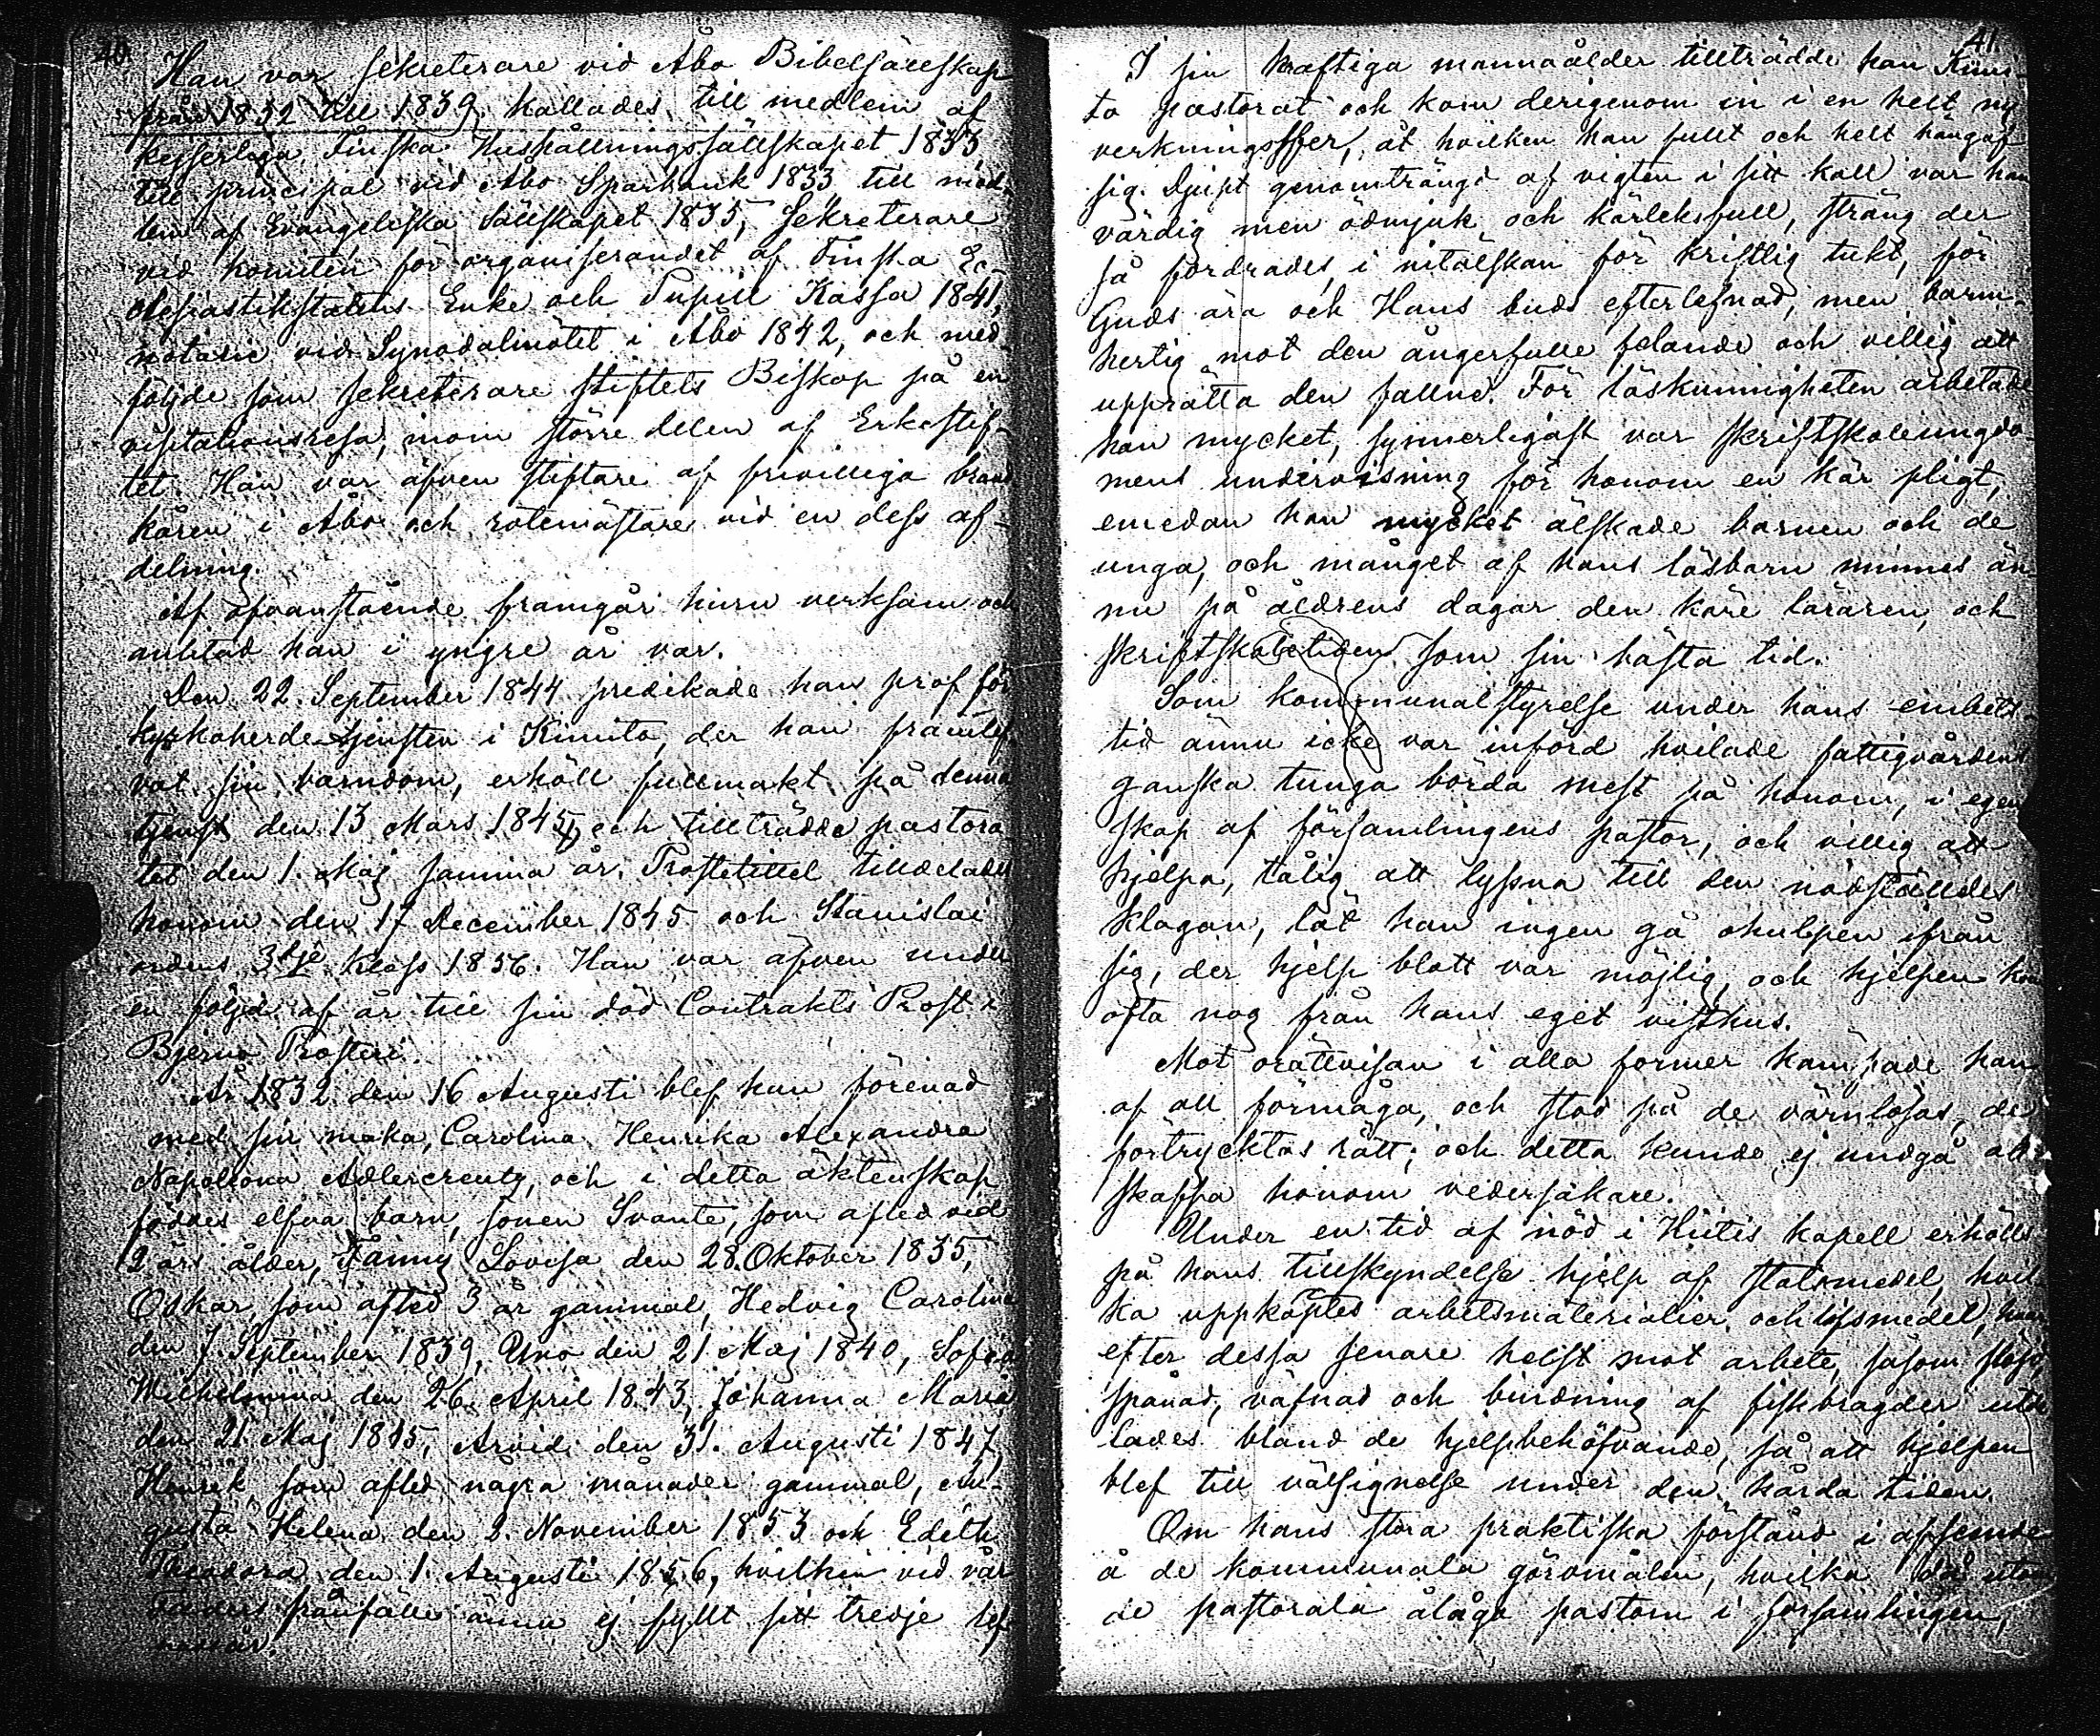 40.
Han var Sekreterare vid Åbo Bibelsällskap
från 1832 till 1839, kallades till medlem af
Kejserliga Finska Hushållningssällskapet 1833,
till principal vid Åbo Sparbank 1833 till med-
lem af Evangeliska Sällskapet 1835, Sekreterare
vid komitén för organiserandet af Finska Ec-
clesiastikstatens Enke och Pupill Kassa 1841,
notarie vid Synodalmötet i Åbo 1842, och med-
följde som sekreterare stiftets Biskop på en
visitationsresa, inom större delen af Erkestif-
tet. Han var äfven stiftare af frivilliga brand
kåren i Åbo och rotemästare vid en dess af-
delning.
Af ofvanstående framgår huru verksam och
anlitad han i yngre år var.
Den 22. September 1844 predikade han prof för
kyrkoherde tjensten i Kimito, der han framlef-
vat sin barndom, erhöll fullmakt på denna
tjenst den 13 Mars 1845, och tillträdde pastora
tet den 1. Maj samma år. Prostetitel tilldelades
honom den 17 December 1845 och Stanislai
ordens 3dje klass 1856. Han var äfven under
en följd af år till sin död Contrakts Prost i
Bjerno Prosteri.
År 1832 den 16 Augusti blef han förenad
med sin maka, Carolina Henrika Alexandra
Napoleona Adlercreutz, och i detta äktenskap
föddes elfva barn, sonen Svante, som afled vid
2 års ålder, Fanny Lovisa den 28. Oktober 1835,
Oskar, som afled 3 år gammal, Hedvig Carolina
den 7. September 1839, Uno den 21 Maj 1840, Sofia
Wilhelmina den 26. April 1843, Johanna Maria
den 21 Maj 1845, Arvid den 31. Augusti 1847,
Henrik, som afled några månader gammal, Au-
gusta Helena den 2. November 1853 och Edith
Theodora den 1. Augusti 1856, hvilken vid vår
Faders frånfälle ännu ej fyllt sitt tredje lef-
nadsår.
41.
I sin kraftiga mannaålder tillträdde han Kimi-
to pastorat och kom derigenom in i en helt ny
verkningssfer, åt hvilken han fullt och helt hängaf
sig. Djupt genomträngd af vigten i sitt kall var han
värdig men ödmjuk och kärleksfull, sträng der
så fordrades, i nitälskan för kristlig tukt, för
Guds ära och Hans buds efterlefnad, men barm-
hertig mot den ångerfulle felande och villig att
upprätta den fallne. För läskunnigheten arbetade
han mycket, synnerligast var skriftskoleungdo-
mens undervisning för honom en kär pligt,
emedan han mycket älskade barnen och de
unga, och månget af hans läsbarn minnes än-
nu på ålderns dagar den käre läraren, och
skriftskoletiden som sin bästa tid.
Som kommunalstyrelse under hans embets-
tid ännu icke var införd hvilade fattigvårdens
ganska tunga börda mest på honom, i egen
skap af församlingens pastor, och villig att
hjelpa, tålig att lyssna till den nödställdes
klagan, lät han ingen gå ohulpen ifrån
sig, der hjelp blott var möjlig, och hjelpen kom
ofta nog från hans eget visthus.
Mot orättvisan i alla former kämpade han
af all förmåga, och stod på de värnlösas, de
förtrycktas rätt; och detta kunde ej undgå att
skaffa honom vedersakare.
Under en tid af nöd i Hitis kapell erhölls
på hans tillskyndelse hjelp af statsmedel, hvil
ka uppköptes arbetsmaterialier och lifsmedel, hvar
efter dessa senare helst mot arbete, såsom slöjd,
spånad, väfnad och bindning af fiskbragder utde
lades bland de hjelpbehöfvande, så att hjelpen
blef till välsignelse under den hårda tiden.
Om hans stora praktiska förstånd i afseende
å de kommunala göromålen, hvilka då utom
de pastorala ålåga pastorn i församlingen,